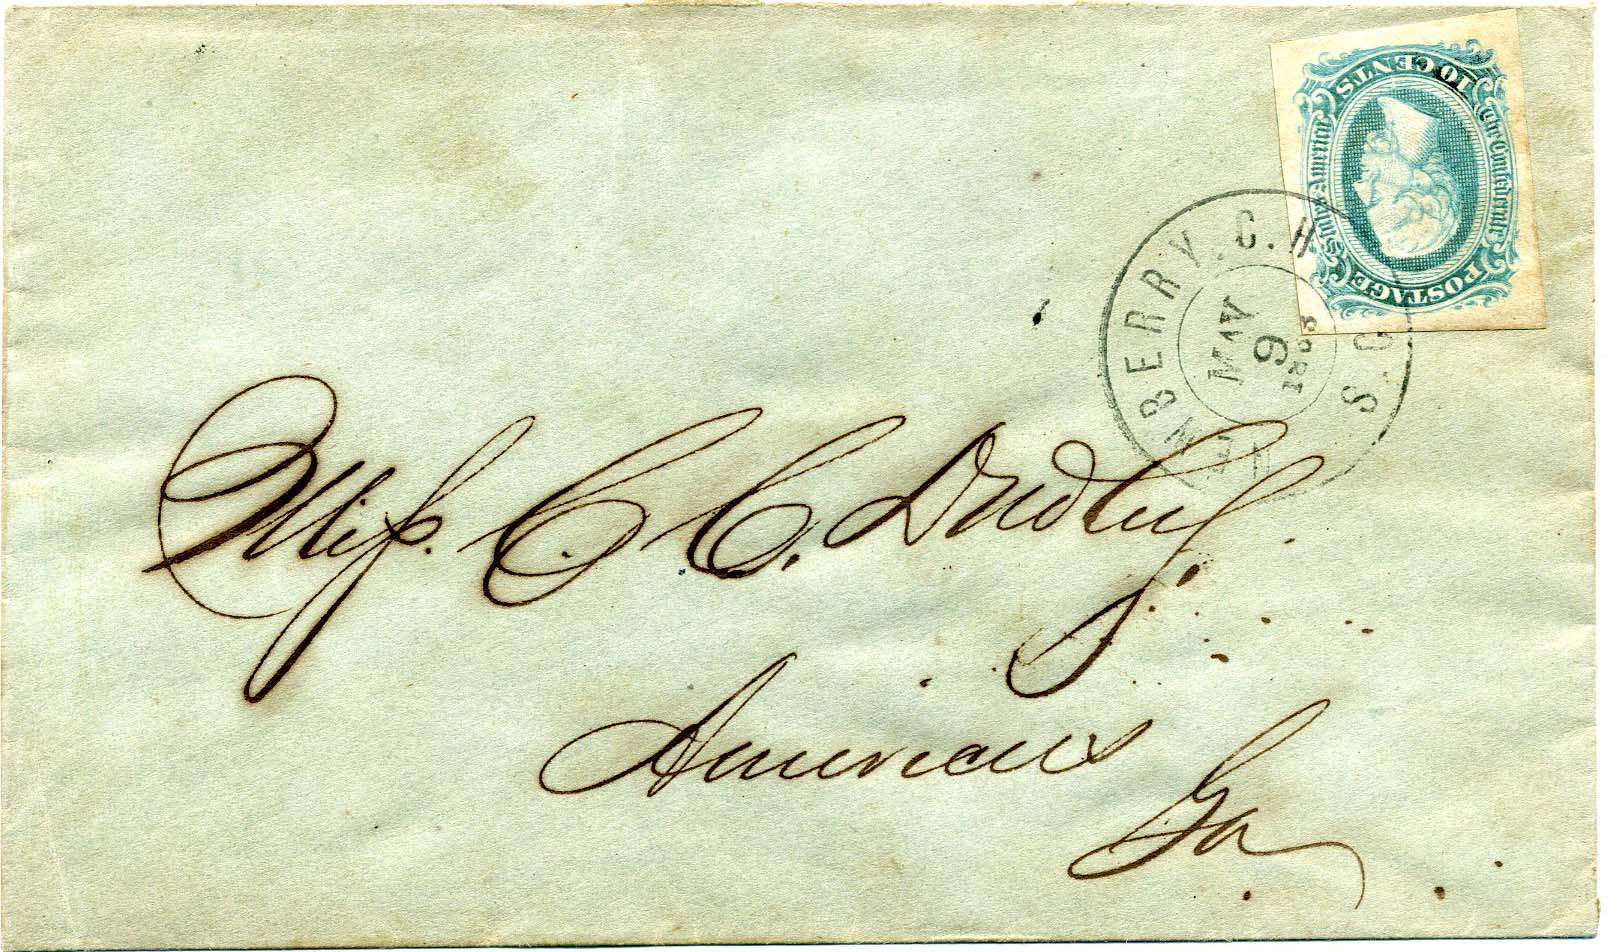 POSTAGE
The Confederate States of America
10 CENTS
NEWBERRY. C.H. S.C.
MAY
9
Miss. C. C. Dudley.
Americus
Ga